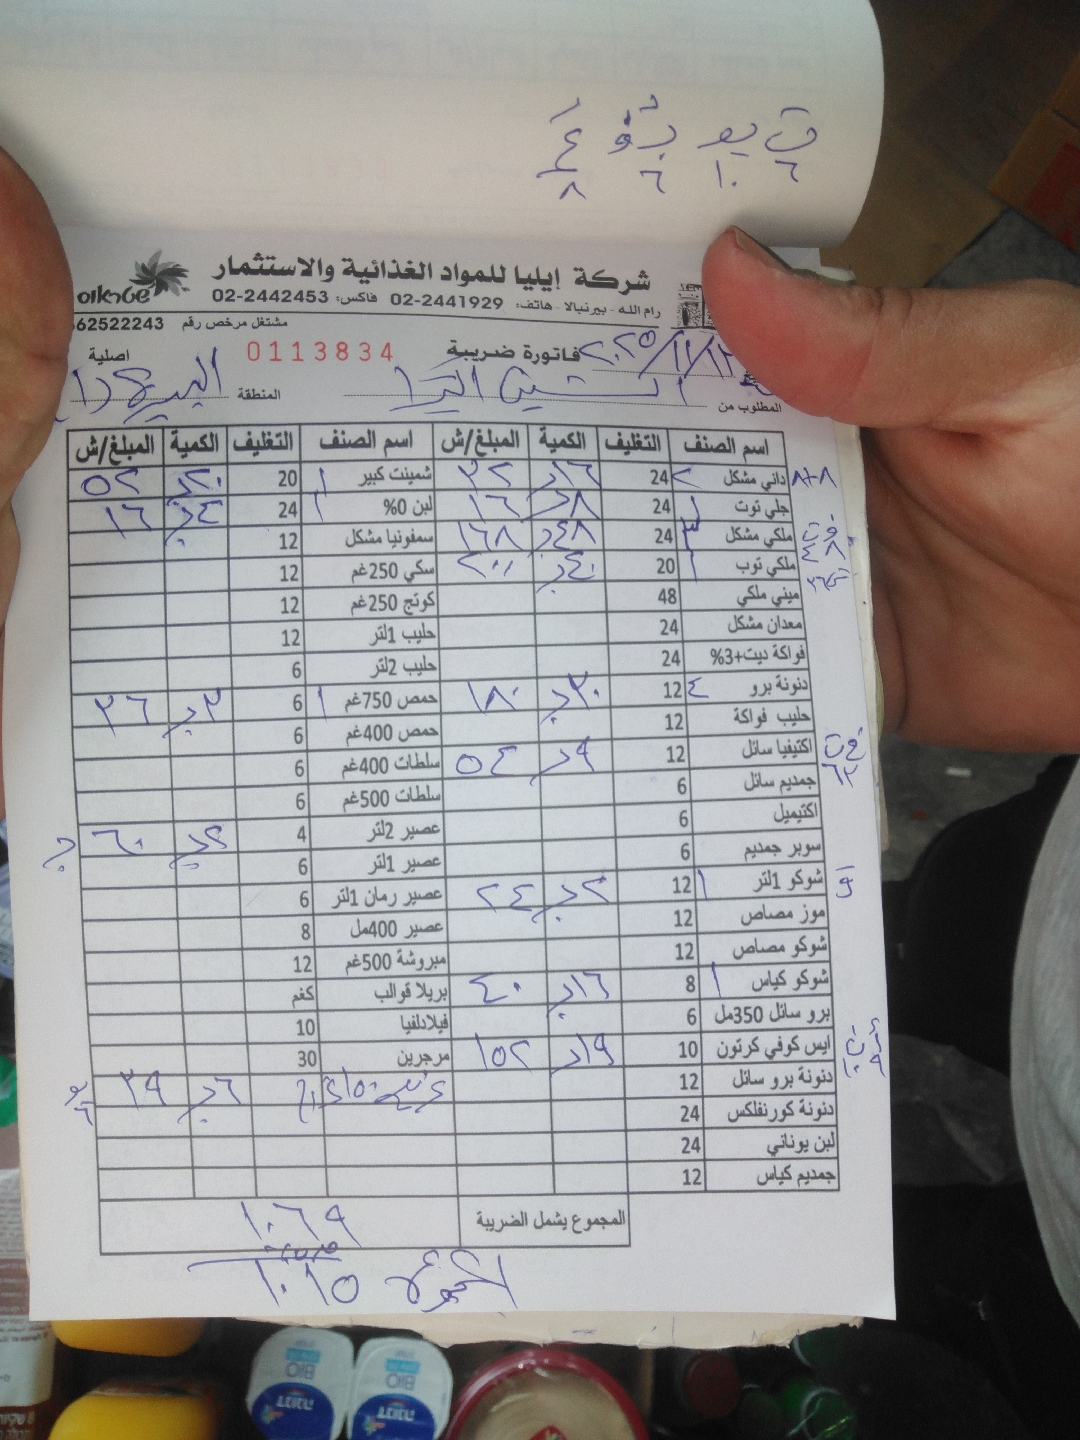 ت يو بر ف ع
٦ ١٠ ٦ ٨
شركة إيليا للمواد الغذائية والاستثمار
رام الله - بيرنبالا - هاتف: 02-2441929 فاكس: 02-2442453
مشتغل مرخص رقم 562522243
فاتورة ضريبة 0113834 اصلية
المطلوب من المنطقة البيرة
اسم الصنف التغليف الكمية المبلغ/ش اسم الصنف التغليف الكمية المبلغ/ش
٨+٨ داني مشكل ٢ 24 ١٦د ٣٢ شمينت كبير ١ 20 ٢٠د ٥٢
جلي توت ١ 24 ٨د ١٦ لبن 0% ١ 24 ٤د ١٦
ملكي مشكل ٣ 24 ٤٨د ١٦٨ سمفونيا مشكل 12
ملكي توب ١ 20 ٤٠د ٢٠٠ سكي 250غم 12
ميني ملكي 48 كوتج 250غم 12
معدان مشكل 24 حليب 1لتر 12
فواكة ديت+3% 24 حليب 2لتر 6
دنونة برو ٤ 12 ٣٠د ١٨٠ حمص 750غم ١ 6 ٣د ٣٦
حليب فواكة 12 حمص 400غم 6
اكتيفيا سائل 12 ٩د ٥٤ سلطات 400غم 6
جمديم سائل 6 سلطات 500غم 6
اكتيميل 6 عصير 2لتر 4 ٢د ٦٠
سوبر جمديم 6 عصير 1لتر 6
شوكو 1لتر ١ 12 ٢د ٢٤ عصير رمان 1لتر 6
موز مصاص 12 عصير 400مل 8
شوكو مصاص 12 مبروشة 500غم 12
شوكو كياس ١ 8 ١٦د ٤٠ بريلا قوالب كغم
برو سائل 350مل 6 فيلادلفيا 10
ايس كوفي كرتون 10 ١٩د ١٥٢ مرجرين 30
دنونة برو سائل 12 ٦د ٣٩
دنونة كورنفلكس 24
لبن يوناني 24
جمديم كياس 12
المجموع يشمل الضريبة ١٠٦٩
المجموع ١٠١٥